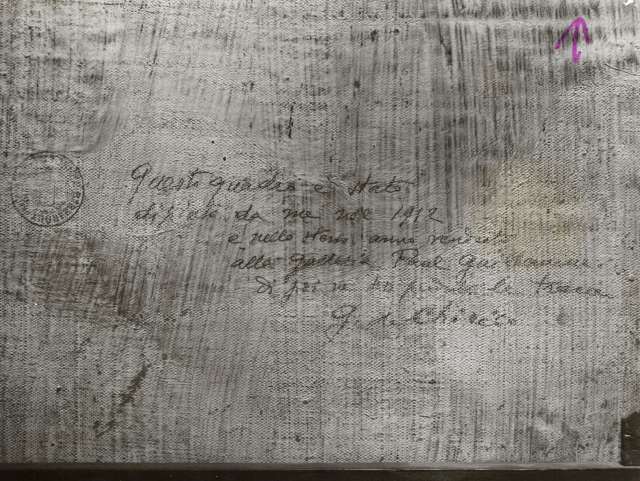 Questo quadro e' stato
dipinto da me nel 1912
e nello stesso anno venduto
alla galleria Paul Guillaume.
Di poi ne ho perduto la traccia
G. de Chirico